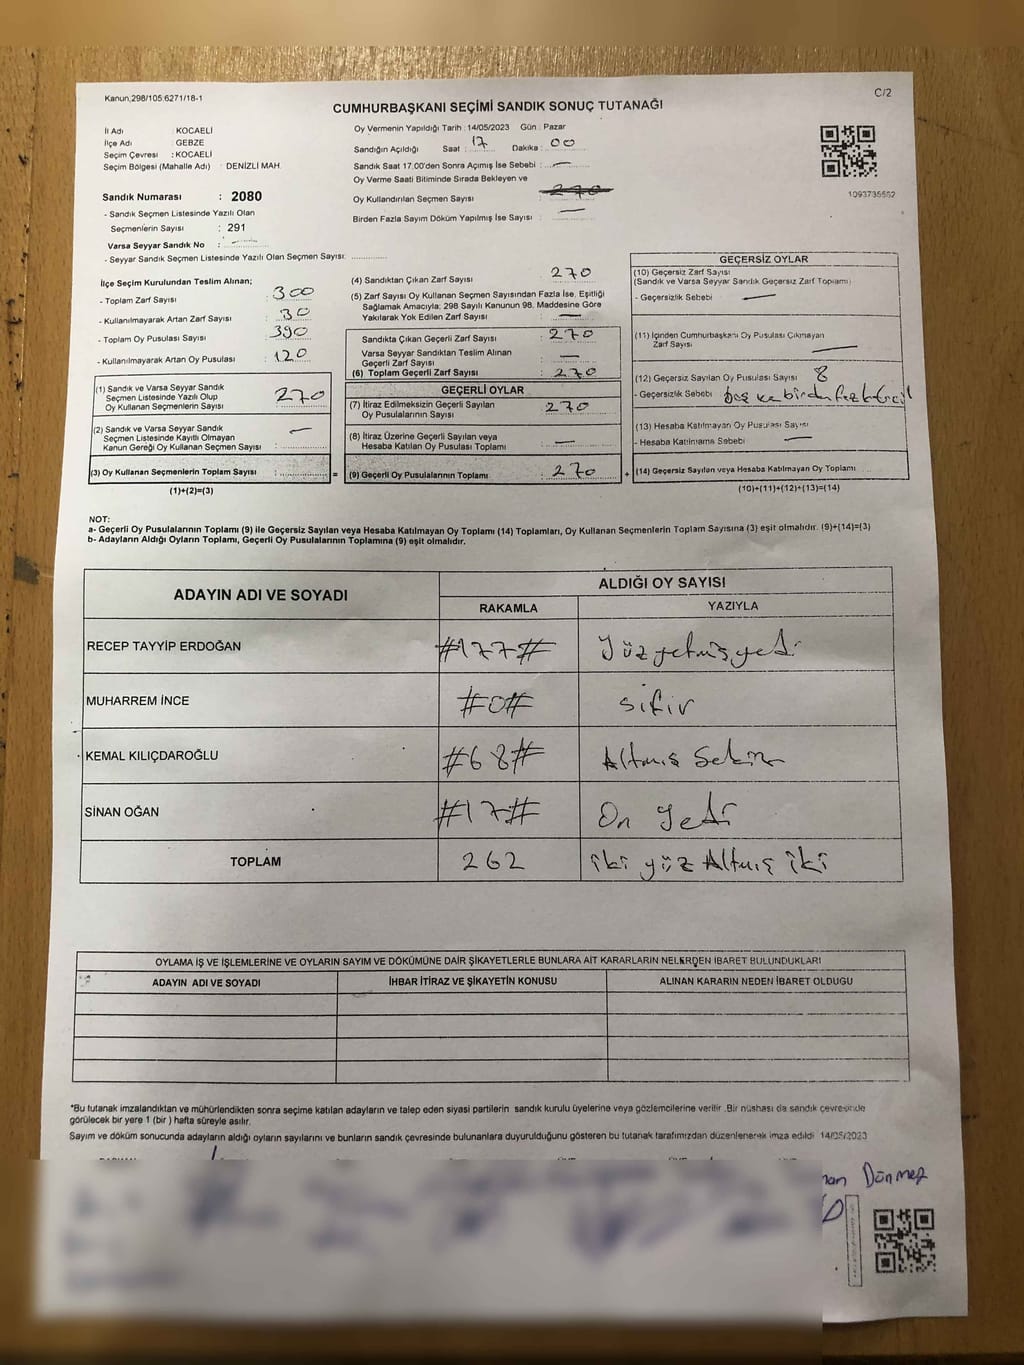 Kanun,298/105:6271/18-1
C/2
CUMHURBAŞKANI SEÇİMİ SANDIK SONUÇ TUTANAĞI
İl Adı : KOCAELİ
İlçe Adı : GEBZE
Seçim Çevresi : KOCAELİ
Seçim Bölgesi (Mahalle Adı) : DENİZLİ MAH.
Oy Vermenin Yapıldığı Tarih : 14/05/2023 Gün : Pazar
Sandığın Açıldığı Saat : 17 Dakika : 00
Sandık Saat 17.00'den Sonra Açımış İse Sebebi : —
Oy Verme Saati Bitiminde Sırada Bekleyen ve
Oy Kullandırılan Seçmen Sayısı :
Birden Fazla Sayım Döküm Yapılmış İse Sayısı : —
1093735552
Sandık Numarası : 2080
- Sandık Seçmen Listesinde Yazılı Olan
Seçmenlerin Sayısı : 291
Varsa Seyyar Sandık No : —
- Seyyar Sandık Seçmen Listesinde Yazılı Olan Seçmen Sayısı:
İlçe Seçim Kurulundan Teslim Alınan;
- Toplam Zarf Sayısı : 300
- Kullanılmayarak Artan Zarf Sayısı : 30
- Toplam Oy Pusulası Sayısı : 390
- Kullanılmayarak Artan Oy Pusulası : 120
(1) Sandık ve Varsa Seyyar Sandık
Seçmen Listesinde Yazılı Olup
Oy Kullanan Seçmenlerin Sayısı : 270
(2) Sandık ve Varsa Seyyar Sandık
Seçmen Listesinde Kayıtlı Olmayan
Kanun Gereği Oy Kullanan Seçmen Sayısı : —
(3) Oy Kullanan Seçmenlerin Toplam Sayısı :
(1)+(2)=(3)
=
(4) Sandıktan Çıkan Zarf Sayısı : 270
(5) Zarf Sayısı Oy Kullanan Seçmen Sayısından Fazla İse, Eşitliği
Sağlamak Amacıyla; 298 Sayılı Kanunun 98. Maddesine Göre
Yakılarak Yok Edilen Zarf Sayısı : —
Sandıkta Çıkan Geçerli Zarf Sayısı : 270
Varsa Seyyar Sandıktan Teslim Alınan
Geçerli Zarf Sayısı : —
(6) Toplam Geçerli Zarf Sayısı : 270
GEÇERLİ OYLAR
(7) İtiraz Edilmeksizin Geçerli Sayılan
Oy Pusulalarının Sayısı : 270
(8) İtiraz Üzerine Geçerli Sayılan veya
Hesaba Katılan Oy Pusulası Toplamı : —
(9) Geçerli Oy Pusulalarının Toplamı : 270
+
GEÇERSİZ OYLAR
(10) Geçersiz Zarf Sayısı
(Sandık ve Varsa Seyyar Sandık Geçersiz Zarf Toplamı) :
- Geçersizlik Sebebi : —
(11) İçinden Cumhurbaşkanı Oy Pusulası Çıkmayan
Zarf Sayısı : —
(12) Geçersiz Sayılan Oy Pusulası Sayısı : 8
- Geçersizlik Sebebi :
(13) Hesaba Katılmayan Oy Pusulası Sayısı
- Hesaba Katılmama Sebebi : —
(14) Geçersiz Sayılan veya Hesaba Katılmayan Oy Toplamı
(10)+(11)+(12)+(13)=(14)
NOT:
a- Geçerli Oy Pusulalarının Toplamı (9) ile Geçersiz Sayılan veya Hesaba Katılmayan Oy Toplamı (14) Toplamları, Oy Kullanan Seçmenlerin Toplam Sayısına (3) eşit olmalıdır. (9)+(14)=(3)
b- Adayların Aldığı Oyların Toplamı, Geçerli Oy Pusulalarının Toplamına (9) eşit olmalıdır.
ADAYIN ADI VE SOYADI
ALDIĞI OY SAYISI
RAKAMLA YAZIYLA
RECEP TAYYİP ERDOĞAN #177# Yüz yetmiş yedi
MUHARREM İNCE #0# sıfır
KEMAL KILIÇDAROĞLU #68# Altmış Sekiz
SİNAN OĞAN #17# On yedi
TOPLAM 262 iki yüz Altmış iki
OYLAMA İŞ VE İŞLEMLERİNE VE OYLARIN SAYIM VE DÖKÜMÜNE DAİR ŞİKAYETLERLE BUNLARA AİT KARARLARIN NELERDEN İBARET BULUNDUKLARI
ADAYIN ADI VE SOYADI İHBAR İTİRAZ VE ŞİKAYETİN KONUSU ALINAN KARARIN NEDEN İBARET OLDUGU
*Bu tutanak imzalandıktan ve mühürlendikten sonra seçime katılan adayların ve talep eden siyasi partilerin sandık kurulu üyelerine veya gözlemcilerine verilir. Bir nüshası da sandık çevresinde
görülecek bir yere 1 (bir ) hafta süreyle asılır.
Sayım ve döküm sonucunda adayların aldığı oyların sayılarını ve bunların sandık çevresinde bulunanlara duyurulduğunu gösteren bu tutanak tarafımızdan düzenlenerek imza edildi 14/05/2023
Dönmez